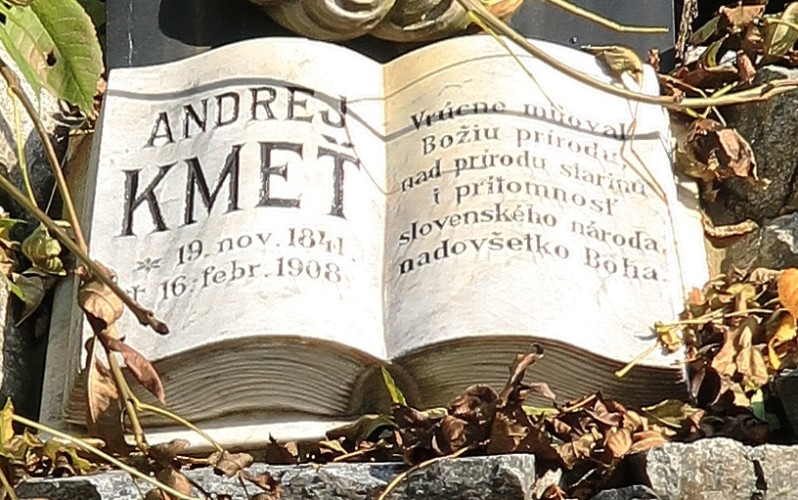 ANDREJ
KMEŤ
* 19. nov. 1841.
† 16. febr. 1908.
Vrúcne miloval
Božiu prírodu,
nad prírodu starinu
i prítomnosť
slovenského národa,
nadovšetko Boha.